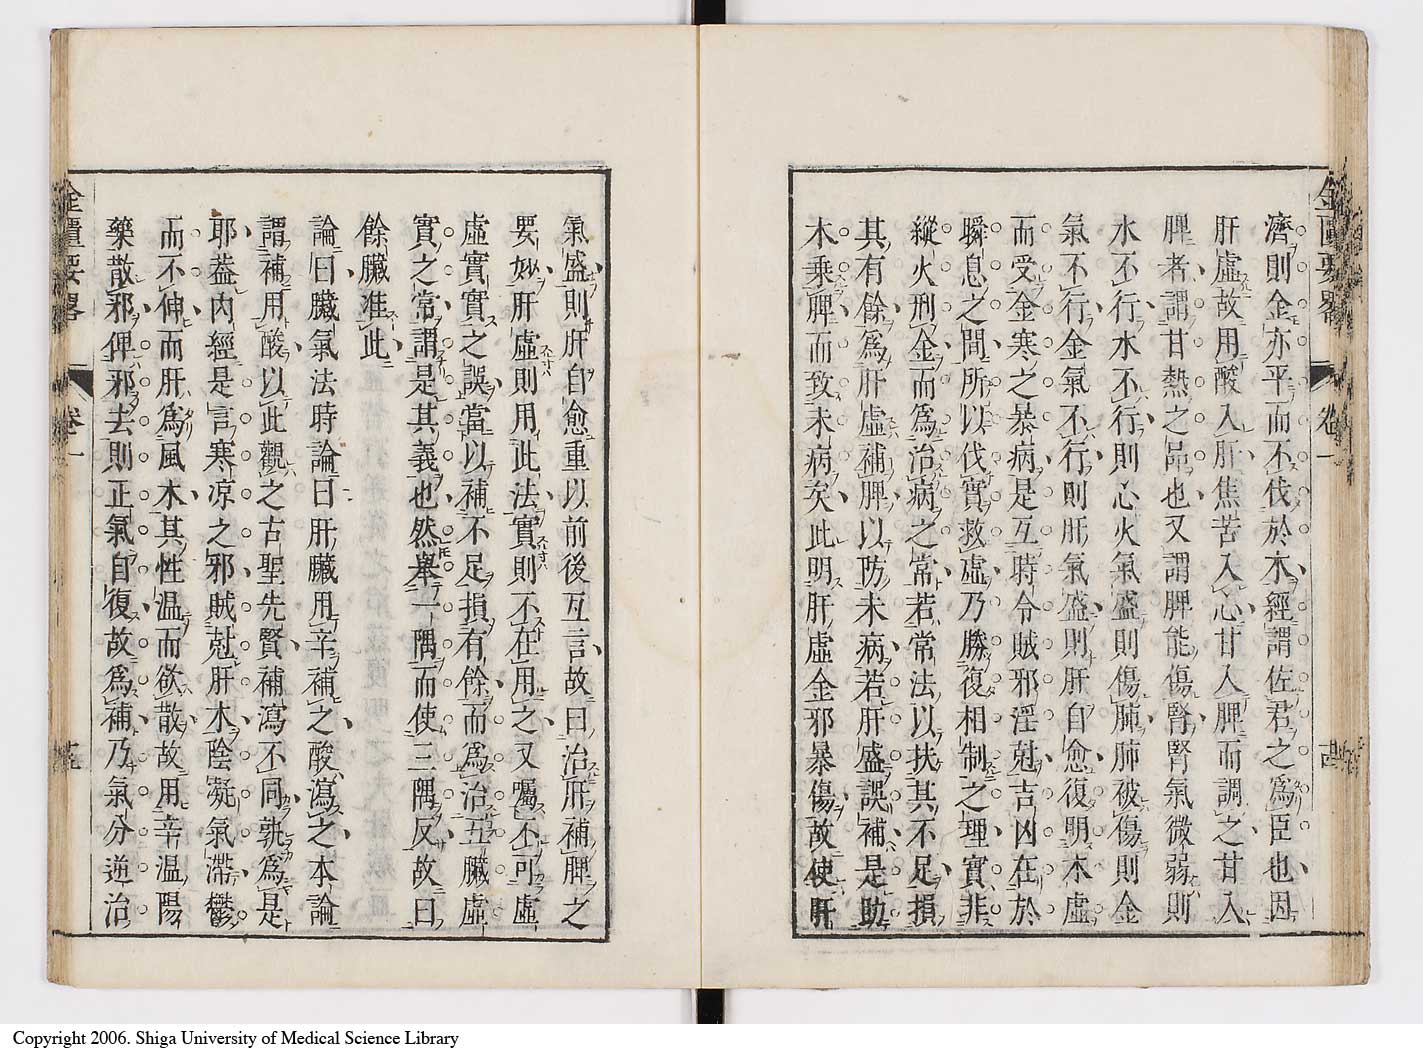 濟則金亦平而不伐於木經謂佐君之爲臣也因
肝虛故用酸入肝焦苦入心甘入脾而調之甘入
脾者謂甘熱之品也又謂脾能傷腎腎氣微弱則
水不行水不行則心火氣盛則傷肺肺被傷則金
氣不行金氣不行則肝氣盛則肝自愈復明木虛
而受金寒之暴病是互時令賊邪淫尅吉凶在於
瞬息之間所以伐實救虛乃勝復相制之理實非
縱火刑金而爲治病之常若常法以扶其不足損
其有餘爲肝虛補脾以防未病若肝盛誤補是助
木乗脾而致未病矣此明肝虛金邪暴傷故使肝
金匱要畧
卷一
氣盛則肝自愈重以前後互言故曰治肝補脾之
要妙肝虛則用此法實則不在用之又囑不可虛
虛實實之誤當以補不足損有餘而爲治五臟虛
實之常謂是其義也然舉一隅而使三隅反故曰
餘臟准此
論曰臟氣法時論曰肝臟用辛補之酸瀉之本論
謂補用酸以此觀之古聖先賢補瀉不同孰爲是
耶葢内經是言寒凉之邪賊尅肝木陰凝氣滯鬱
而不伸而肝爲風木其性温而欲散故用辛温陽
藥散邪俾邪去則正氣自復故爲補乃氣分逆治
金匱要畧
卷一
Copyright 2006. Shiga University of Medical Science Library